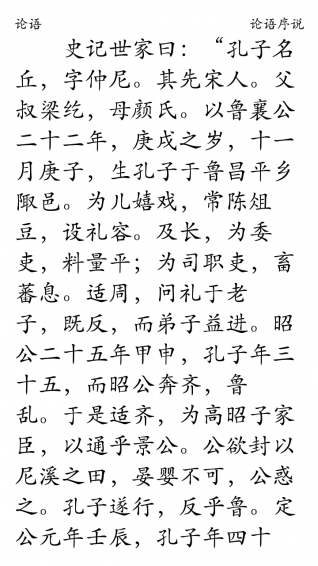 论语
论语序说
史记世家曰：“孔子名
丘，字仲尼。其先宋人。父
叔梁纥，母颜氏。以鲁襄公
二十二年，庚戌之岁，十一
月庚子，生孔子于鲁昌平乡
陬邑。为儿嬉戏，常陈俎
豆，设礼容。及长，为委
吏，料量平；为司职吏，畜
蕃息。适周，问礼于老
子，既反，而弟子益进。昭
公二十五年甲申，孔子年三
十五，而昭公奔齐，鲁
乱。于是适齐，为高昭子家
臣，以通乎景公。公欲封以
尼溪之田，晏婴不可，公惑
之。孔子遂行，反乎鲁。定
公元年壬辰，孔子年四十